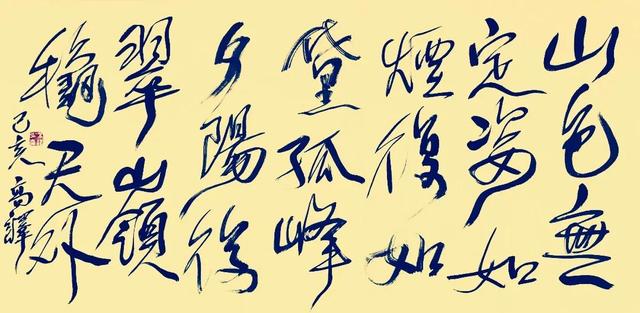 山色無
定姿如
煙復如
黛孤峰
夕陽後
翠嶺
穐天外
己亥高